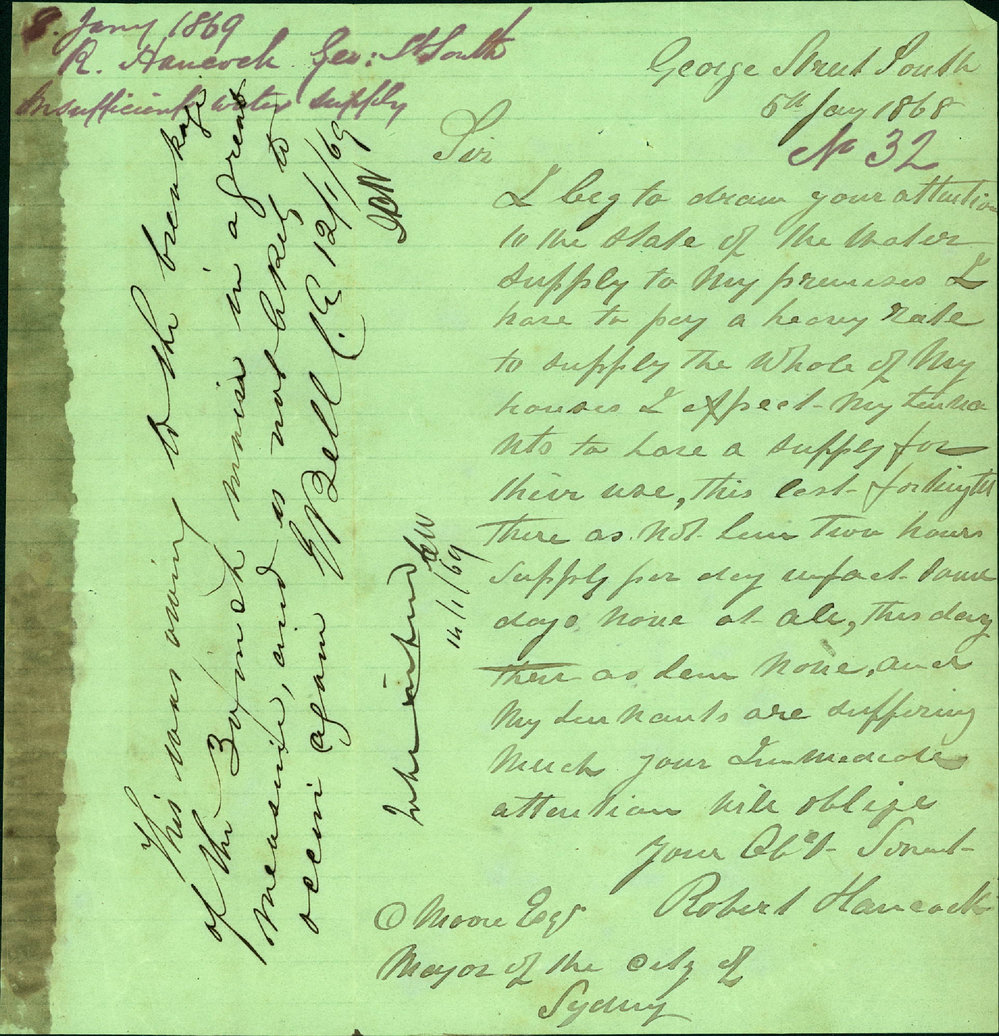 8. Jany 1869
R. Hancock Geo: St South
Insufficient water supply
George Street South
5th Jay 1868
No 32
Sir
I beg to draw your attention
to the state of the Water
supply to My premises I
have to pay a heavy rate
to supply the Whole of My
houses I expect My tenna
nts to have a supply for
their use, this last fortnight
there as Not been Two hours
supply per day infact some
days None at all, this day
there as been None, and
My tennants are suffering
Much your Immediate
attention Will oblige
Your Obet Servt
Robert Hancock
C Moore Esqr
Mayor of the City of
Sydny
This was owing to the breakage
of the 30 inch main in a great
measure, and is not likely to
occur again E Bell C.E 12/1/69
14/1/69